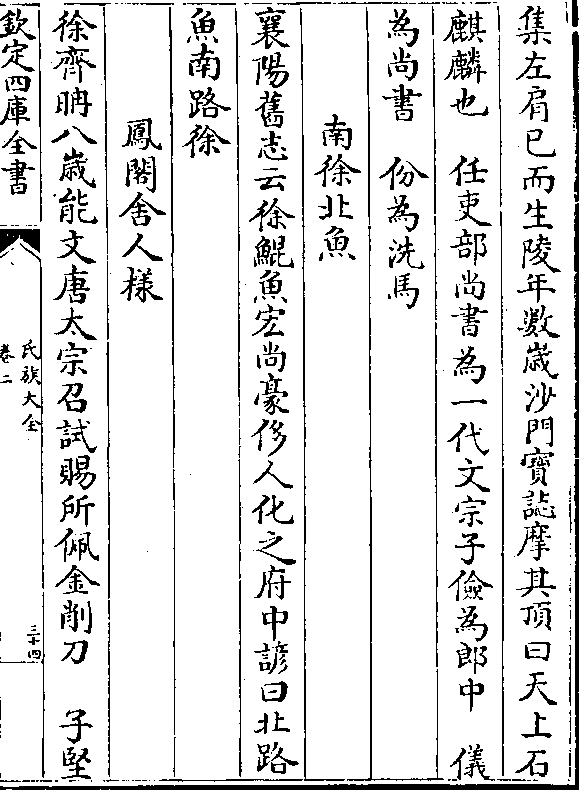 集左肩已而生陵年數歲沙門寶誌摩其頂曰天上石
麒麟也　任吏部尚書為一代文宗子儉為郎中　儀
為尚書　份為洗馬
南徐北魚
襄陽舊志云徐鯤魚宏尚豪侈人化之府中諺曰北路
魚南路徐
鳳閣舍人樣
徐齊聃八歲能文唐太宗召試賜所佩金削刀　子堅
欽定四庫全書
氏族大全
卷二
三十四